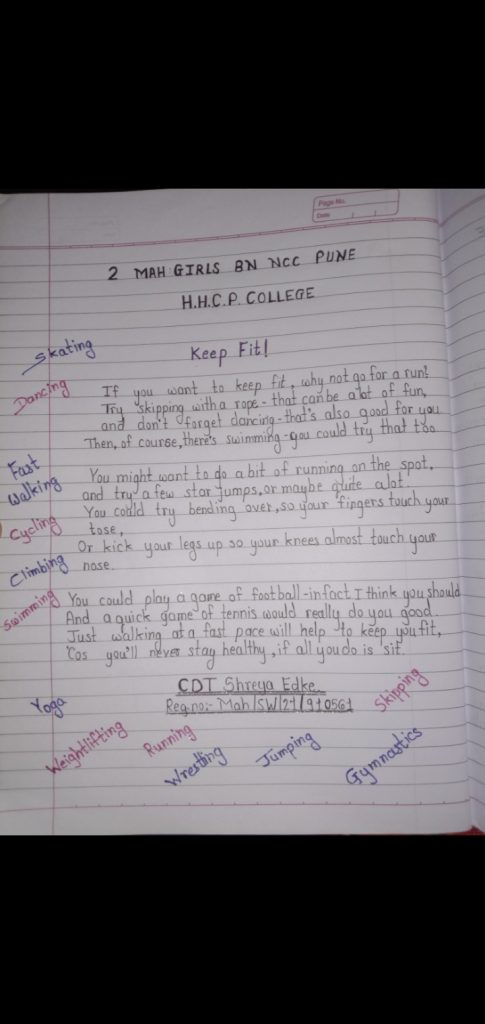 Page No.
Date
2 MAH GIRLS BN NCC PUNE
H.H.C.P. COLLEGE
Skating
Keep Fit!
Dancing
If you want to keep fit, why not go for a run?
Try skipping with a rope - that can be a lot of fun,
and don't forget dancing - that's also good for you
Then, of course, there's swimming - you could try that too
Fast
Walking
You might want to do a bit of running on the spot,
and try a few star jumps, or maybe quite a lot.
Cycling
You could try bending over, so your fingers touch your
tose,
Or kick your legs up so your knees almost touch your
Climbing
nose.
Swimming
You could play a game of football - infact I think you should
And a quick game of tennis would really do you good.
Just walking at a fast pace will help to keep you fit,
'Cos you'll never stay healthy, if all you do is sit.
CDT Shreya Edke
Reg.no:- Mah/SW/21/910561
Yoga
Weightlifting
Running
Wrestling
Jumping
Skipping
Gymnastics